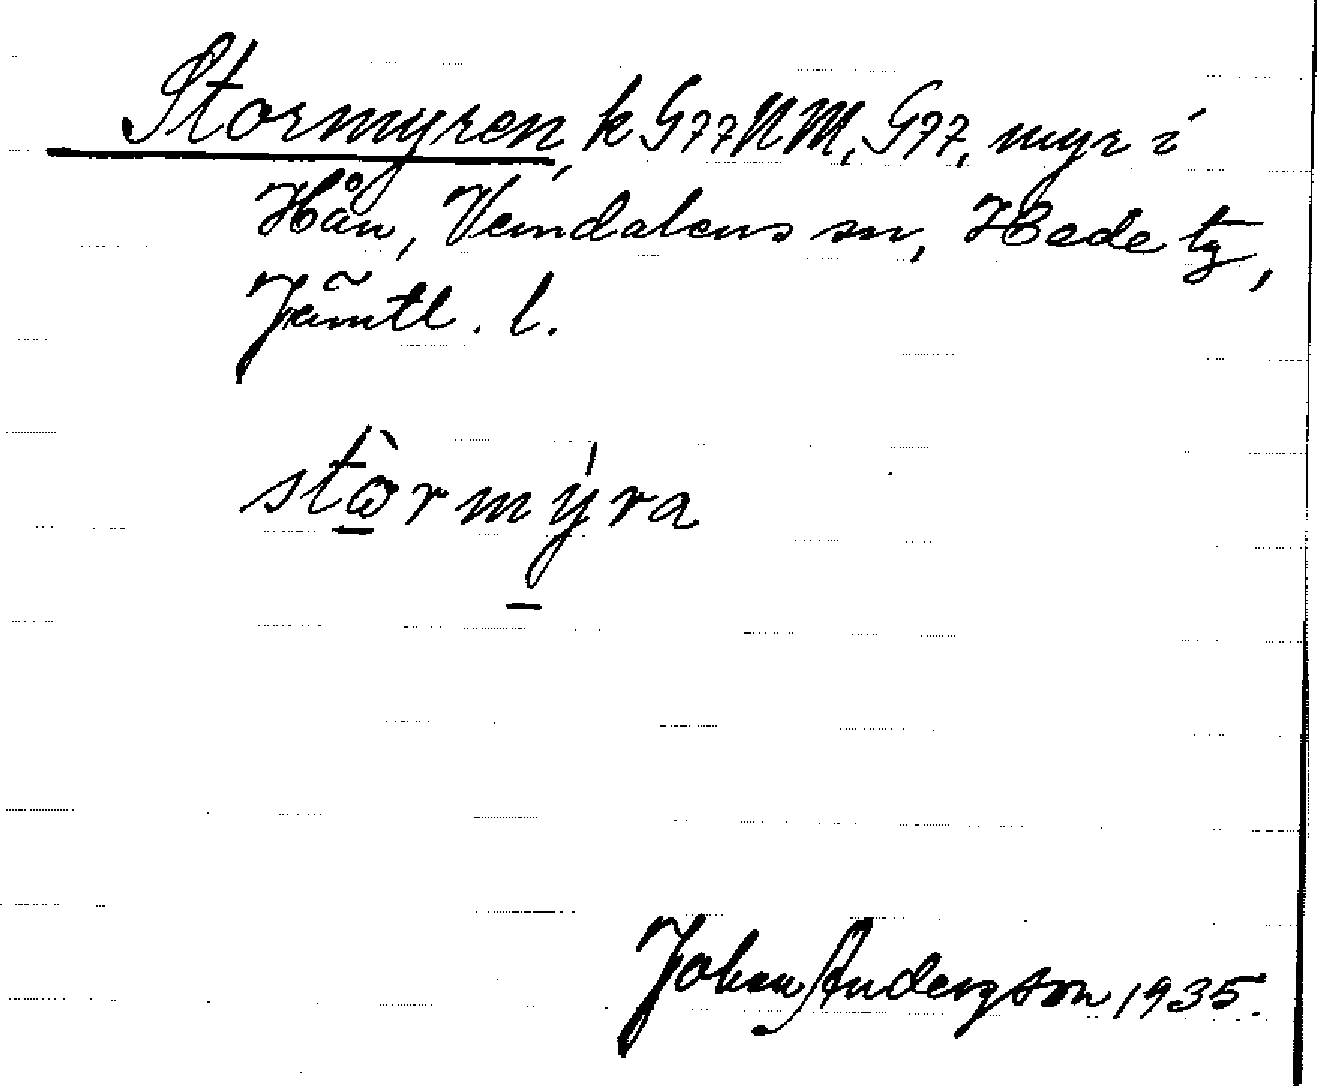 Stormyren, k G77NM, G77, myr i
Hån, Vemdalens sn, Hede tg,
Jämtl. l.
stòrmýra
Johan Anderzson 1935.